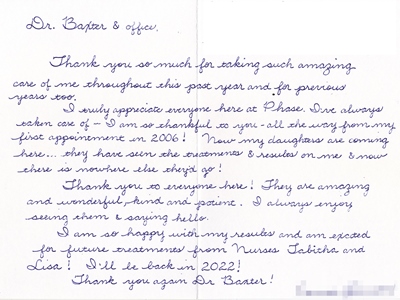 Dr. Baxter & office,
Thank you so much for taking such amazing
care of me throughout this past year and for previous
years too.
I truly appreciate everyone here at Phase. I've always
taken care of - I am so thankful to you - all the way from my
first appointment in 2006! Now my daughters are coming
here... they have seen the treatments & results on me & now
there is nowhere else they'd go!
Thank you to everyone here! They are amazing
and wonderful, kind and patient. I always enjoy
seeing them & saying hello.
I am so happy with my results and am excited
for future treatments from Nurses Tabitha and
Lisa! I'll be back in 2022!
Thank you again Dr Baxter!